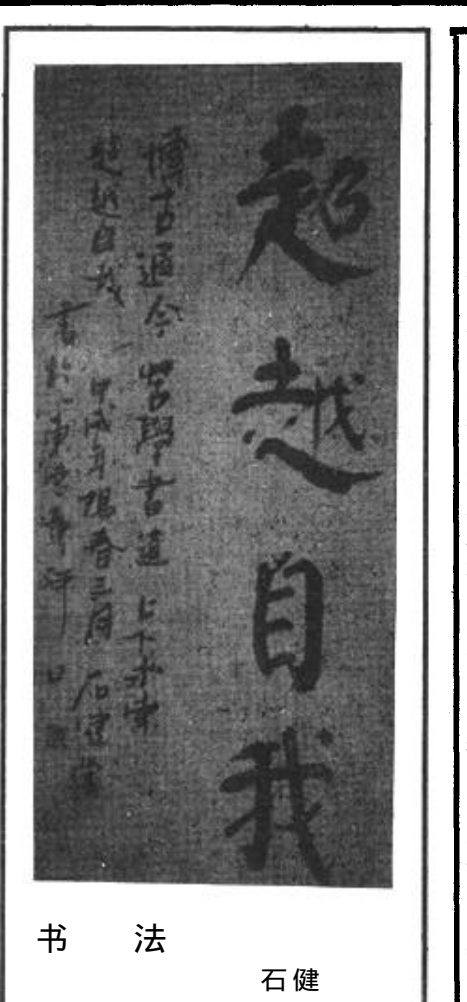 超越自我
博古通今 苦学書道 上下求索
超越自我 甲戌年陽春三月 石建
書於
书 法
石健